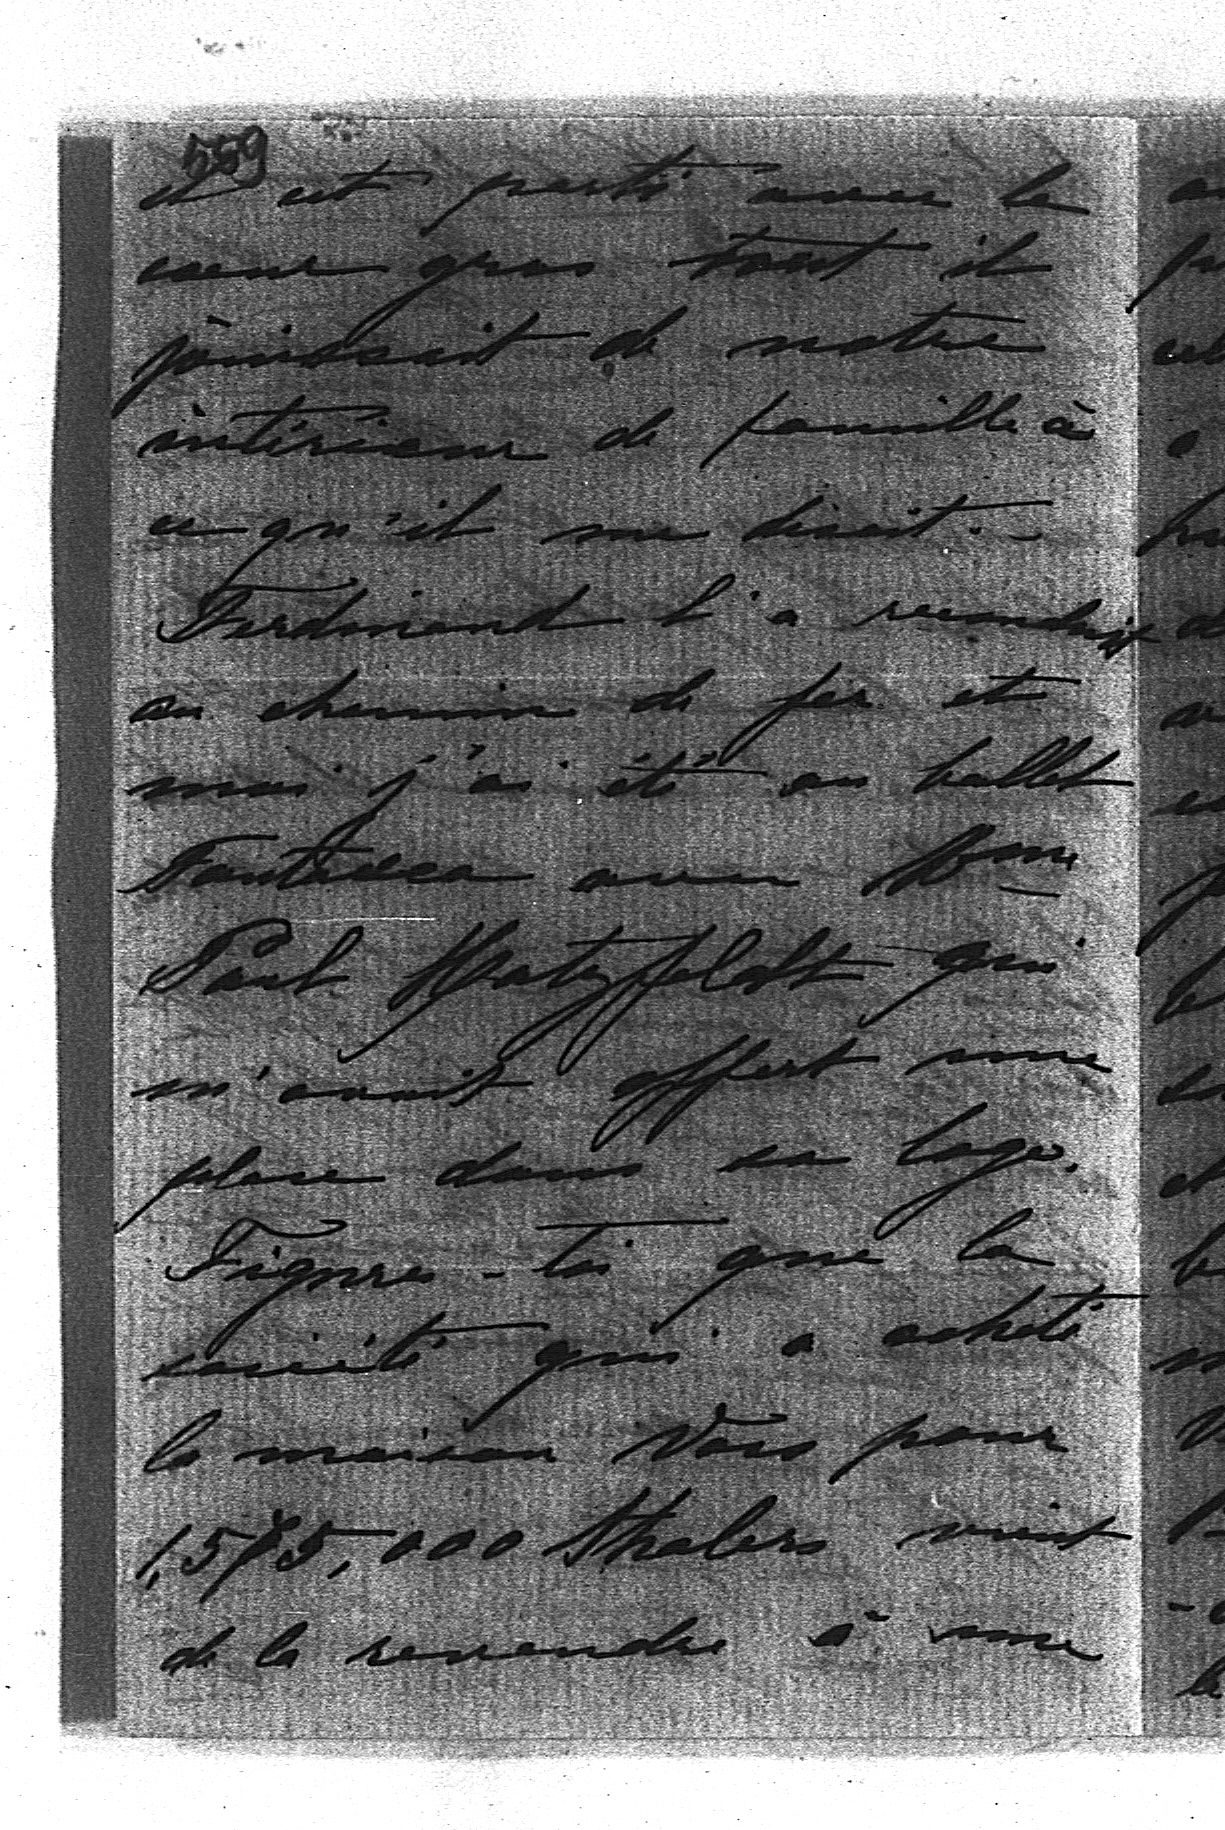 559
il est parti avec le
cœur gros tant il
jouissait de notre
intérieur de famille à
ce qu'il me disait. -
Ferdinand l'a reconduit
au chemin de fer et
moi j'ai été au ballet
Fantasca avec Mme
Paul Hatzfeldt qui
m'avait offert une
place dans sa loge.
Figures-toi que la
société qui a acheté
la maison Voss pour
000 Thalers vient
de la revendre à une